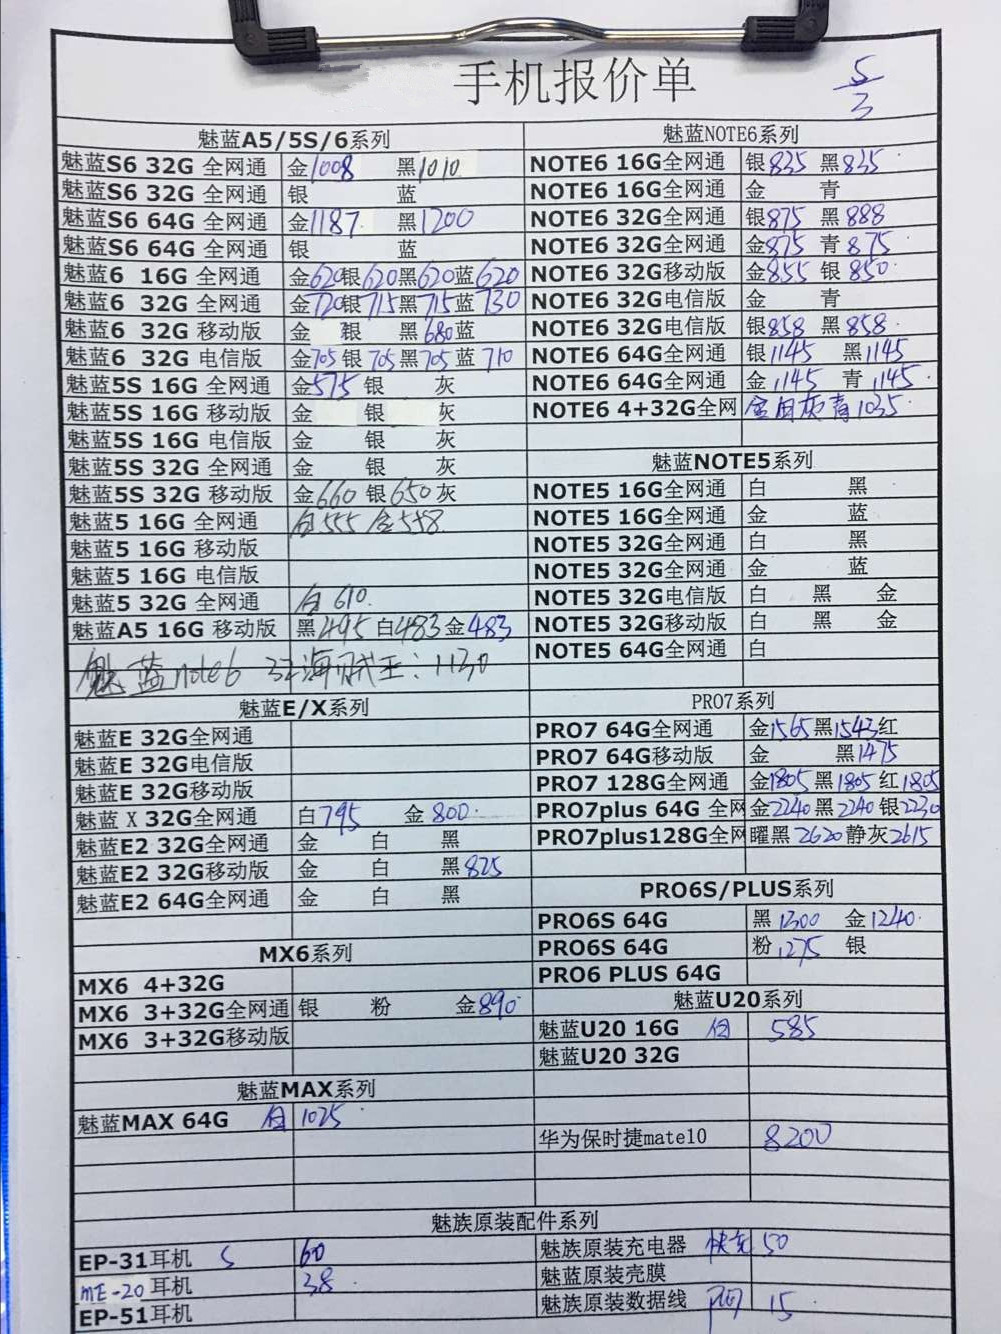 手机报价单
5/3
魅蓝A5/5S/6系列
魅蓝S6 32G 全网通 金1008 黑1010
魅蓝S6 32G 全网通 银 蓝
魅蓝S6 64G 全网通 金1187 黑1200
魅蓝S6 64G 全网通 银 蓝
魅蓝6 16G 全网通 金620银620黑620蓝620
魅蓝6 32G 全网通 金720银715黑715蓝730
魅蓝6 32G 移动版 金 银 黑680蓝
魅蓝6 32G 电信版 金705银705黑705蓝710
魅蓝5S 16G 全网通 金575 银 灰
魅蓝5S 16G 移动版 金 银 灰
魅蓝5S 16G 电信版 金 银 灰
魅蓝5S 32G 全网通 金 银 灰
魅蓝5S 32G 移动版 金660 银650灰
魅蓝5 16G 全网通 白555 金558
魅蓝5 16G 移动版
魅蓝5 16G 电信版
魅蓝5 32G 全网通 白610
魅蓝A5 16G 移动版 黑495白483金483
魅蓝note6 32海贼王：1130
魅蓝E/X系列
魅蓝E 32G全网通
魅蓝E 32G电信版
魅蓝E 32G移动版
魅蓝X 32G全网通 白795 金800
魅蓝E2 32G全网通 金 白 黑
魅蓝E2 32G移动版 金 白 黑825
魅蓝E2 64G全网通 金 白 黑
MX6系列
MX6 4+32G
MX6 3+32G全网通 银 粉 金890
MX6 3+32G移动版
魅蓝MAX系列
魅蓝MAX 64G 白 1025
魅蓝NOTE6系列
NOTE6 16G全网通 银835 黑835
NOTE6 16G全网通 金 青
NOTE6 32G全网通 银875 黑888
NOTE6 32G全网通 金875 青875
NOTE6 32G移动版 金855 银850
NOTE6 32G电信版 金 青
NOTE6 32G电信版 银858 黑858
NOTE6 64G全网通 银1145 黑1145
NOTE6 64G全网通 金1145 青1145
NOTE6 4+32G全网 金 灰青1035
魅蓝NOTE5系列
NOTE5 16G全网通 白 黑
NOTE5 16G全网通 金 蓝
NOTE5 32G全网通 白 黑
NOTE5 32G全网通 金 蓝
NOTE5 32G电信版 白 黑 金
NOTE5 32G移动版 白 黑 金
NOTE5 64G全网通 白
PRO7系列
PRO7 64G全网通 金1565黑1543红
PRO7 64G移动版 金 黑1475
PRO7 128G全网通 金1805黑1805红1805
PRO7plus 64G 全网 金2240黑2240银2230
PRO7plus128G全网 曜黑2620静灰2615
PRO6S/PLUS系列
PRO6S 64G 黑1300 金1240
PRO6S 64G 粉1275 银
PRO6 PLUS 64G
魅蓝U20系列
魅蓝U20 16G 白 585
魅蓝U20 32G
华为保时捷mate10 8200
魅族原装配件系列
EP-31耳机 S 60
ME-20耳机 38
EP-51耳机
魅族原装充电器 快充 50
魅蓝原装壳膜
魅族原装数据线 15